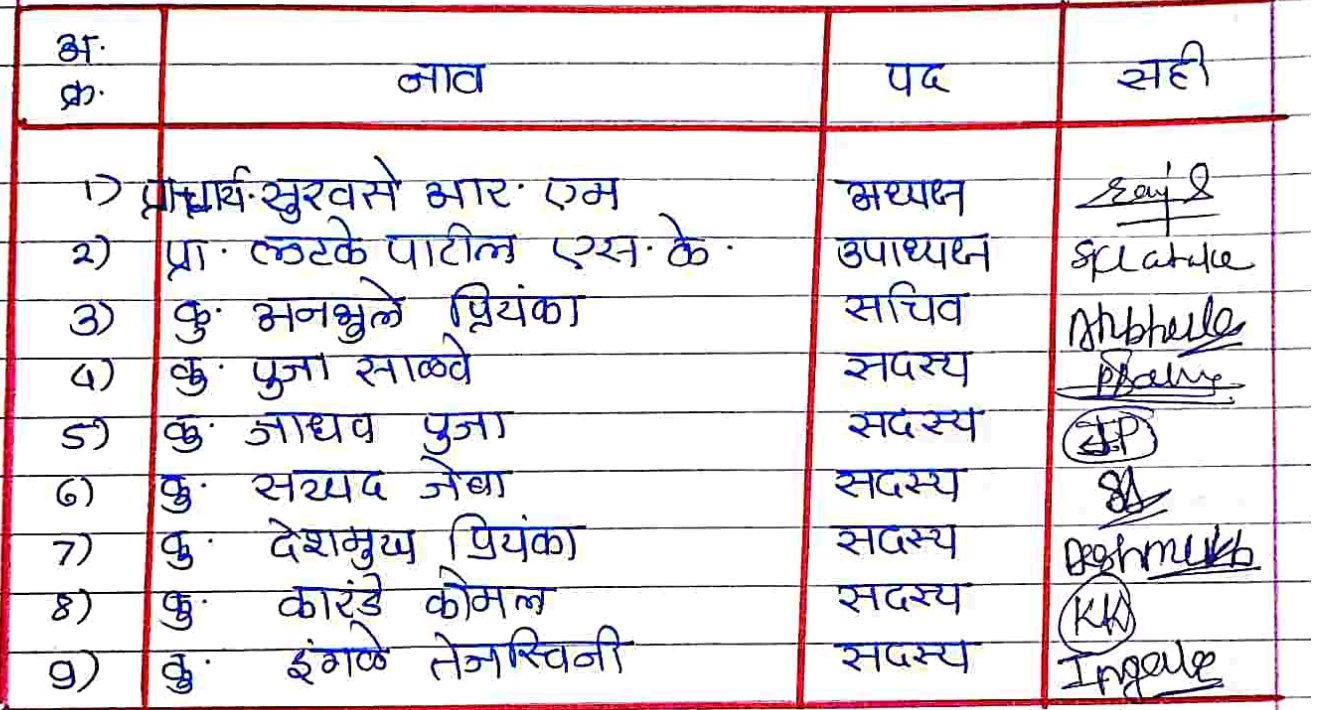 अ.
क्र. नाव पद सही
1) प्राचार्य. सुरवसे आर. एम अध्यक्ष
2) प्रा. लटके पाटील एस. के. उपाध्यक्ष
3) कु. अनभुले प्रियंका सचिव
4) कु. पुजा साळवे सदस्य
5) कु. जाधव पुजा सदस्य JP
6) कु. सय्यद जेबा सदस्य
7) कु. देशमुख प्रियंका सदस्य Deshmukh
8) कु. कारंडे कोमल सदस्य KK
9) कु. इंगळे तेजस्विनी सदस्य Ingale